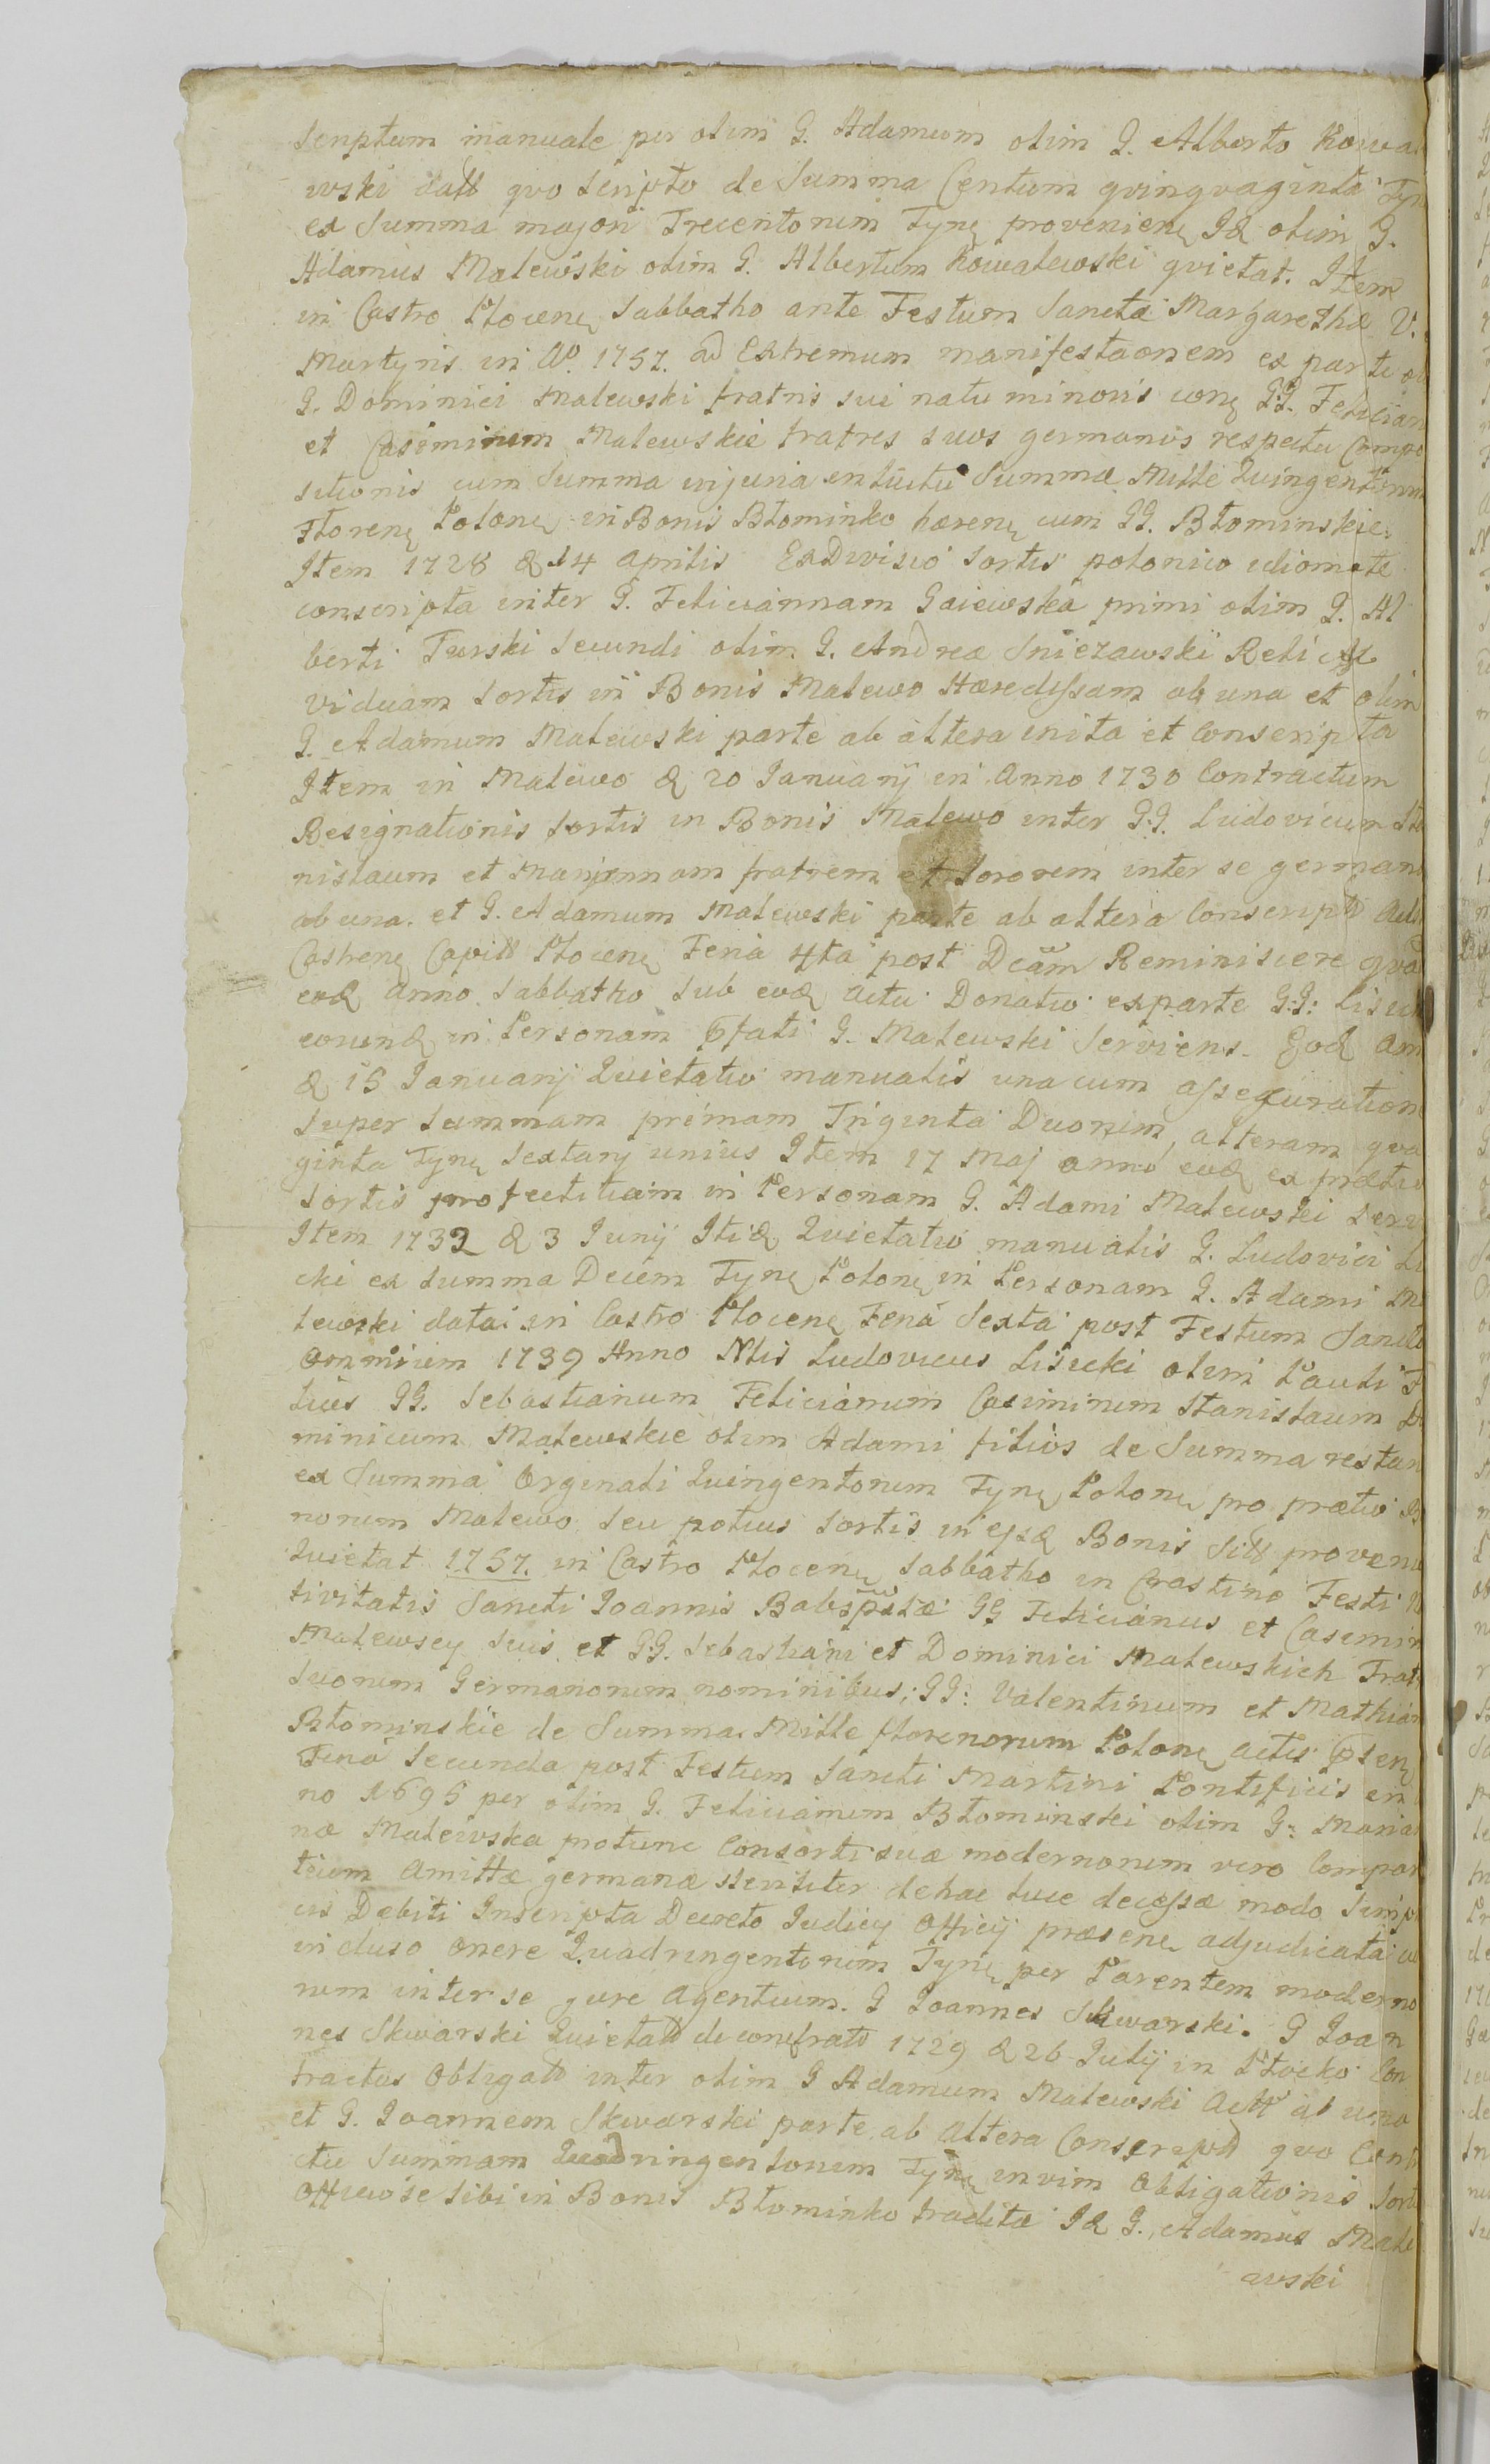 Scriptum manuale per olim G. Adamum olim G. Alberto Kowa
wski datt qvo Scripto de Summa Centum qvinqvaginta Tyn
ex Summa majori Trecentorum Tynę provenienę Id olim G.
Adamus Malewski olim G. Albertum Kowalewski qvietat. Item
in Castro Płocenę Sabbatho ante Festum Sanctæ Margarethæ V.
Martyris in Ao. 1757. ad Extremum manifestaonem ex parte
G. Dominici Malewski fratris sui natu minoris conę G.G. Felician
et Casimirum Malewskie fratres suos germanos respectu Compo
sitionis cum Summa injuria intuitu Summæ Mille Quingentorum
Florenę Polonę in Bonis Błominko hærenę cum GG. Błominskie.
Item 1728 & 14 Aprilis ExDivisio Sortis polonico idiomate
conscripta inter G. Feliciannam Gaiewska primi olim G. Al
berti Turski Secundi olim G. Andreæ Sniezawski Relict
viduam Sortis in Bonis Malewo Hæredissam ab una et olim
G. Adamum Malewski parte ab altera inita et Conscripta
Item in Malewo & 20 Januarij in Anno 1730 Contractum
Resignationis Sortis in Bonis Malewo inter G.G. Ludovicum Sta
nislaum et Mariannam fratrem et Sororem inter se german
ab una. et G. Adamum Malewski parte ab altera Conscript Acti
Castrenę Capitt Płocenę Feria 4ta post Dcam Reminiscere qva
eod Anno Sabbatho Sub eod actu Donatio ex parte G:G: Lisick
eorund in Personam pfati G. Malewski Serviens. Eod Ann
& 15 Januarij Quietatio manualis una cum assequration
Super Summam primam Triginta Duorum, alteram qva
ginta Tynę Sextarij unius Item 17 Maj anno eod ex prætio
Sortis profectitiam in Personam G. Adami Malewski Serv
Item 1732 & 3 Junij Itid Quietatio manualis G. Ludovici Li
cki ex Summa Decem Tynę Polonę in Personam G. Adami Ma
lewski data. in Castro Płocenę Feria Sexta post Festum Sancto
omnium 1739 Anno Nlis Ludovicus Lisicki olim Pauli F
lius GG. Sebastianum Felicianum Casimirum Stanislaum Do
minicum Malewskie olim Adami filios de Summa restan
ex Summa Orginali Quingentorum Tynę Polonę pro prætio Bo
norum Malewo Seu potius Sortis in ejsd Bonis Sitt proveni
Quietat 1757. in Castro Płocenę Sabbatho in Crastino Festi Na
tivitatis Sancti Joannis Babtpstæ GG Felicianus et Casimir
Malewscy Suis et G.G. Sebastiani et Dominici Malewskich Frat
Suorum Germanorum nominibus; GG: Valentinum et Mathiam
Błominskie de Summa Mille florenorum Polonę actis psen
Feria Secunda post Festum Sancti Martini Pontificis in
no 1695 per olim G. Felicianum Błominski olim G: Maria
næ Malewska protunc Consorti suæ modernorum vero Compar
tium Amittæ germanæ steriliter dehac luce decessæ modo Simpl
cis Debiti Inscripta Decreto Judicij Officij præsenę adjudicata cu
incluso onere Quadringentorum Tynę per Parentem moderno
rum inter se jure Agentium. G Joannes Skwarski. G Joan
nes Skwarski Quietatt de contrato 1729 & 26 Julij in Płocko Con
tractus Obligatt inter olim G Adamum Malewski Actt ab una
et G. Joannem Skwarski parte ab altera Conscriptt qvo Cont
ctu Summam Quadringentorum Tynę invim Obligationis Sort
Officiose Sibi in Bonis Błominko traditæ Id G. Adamus Male
wski